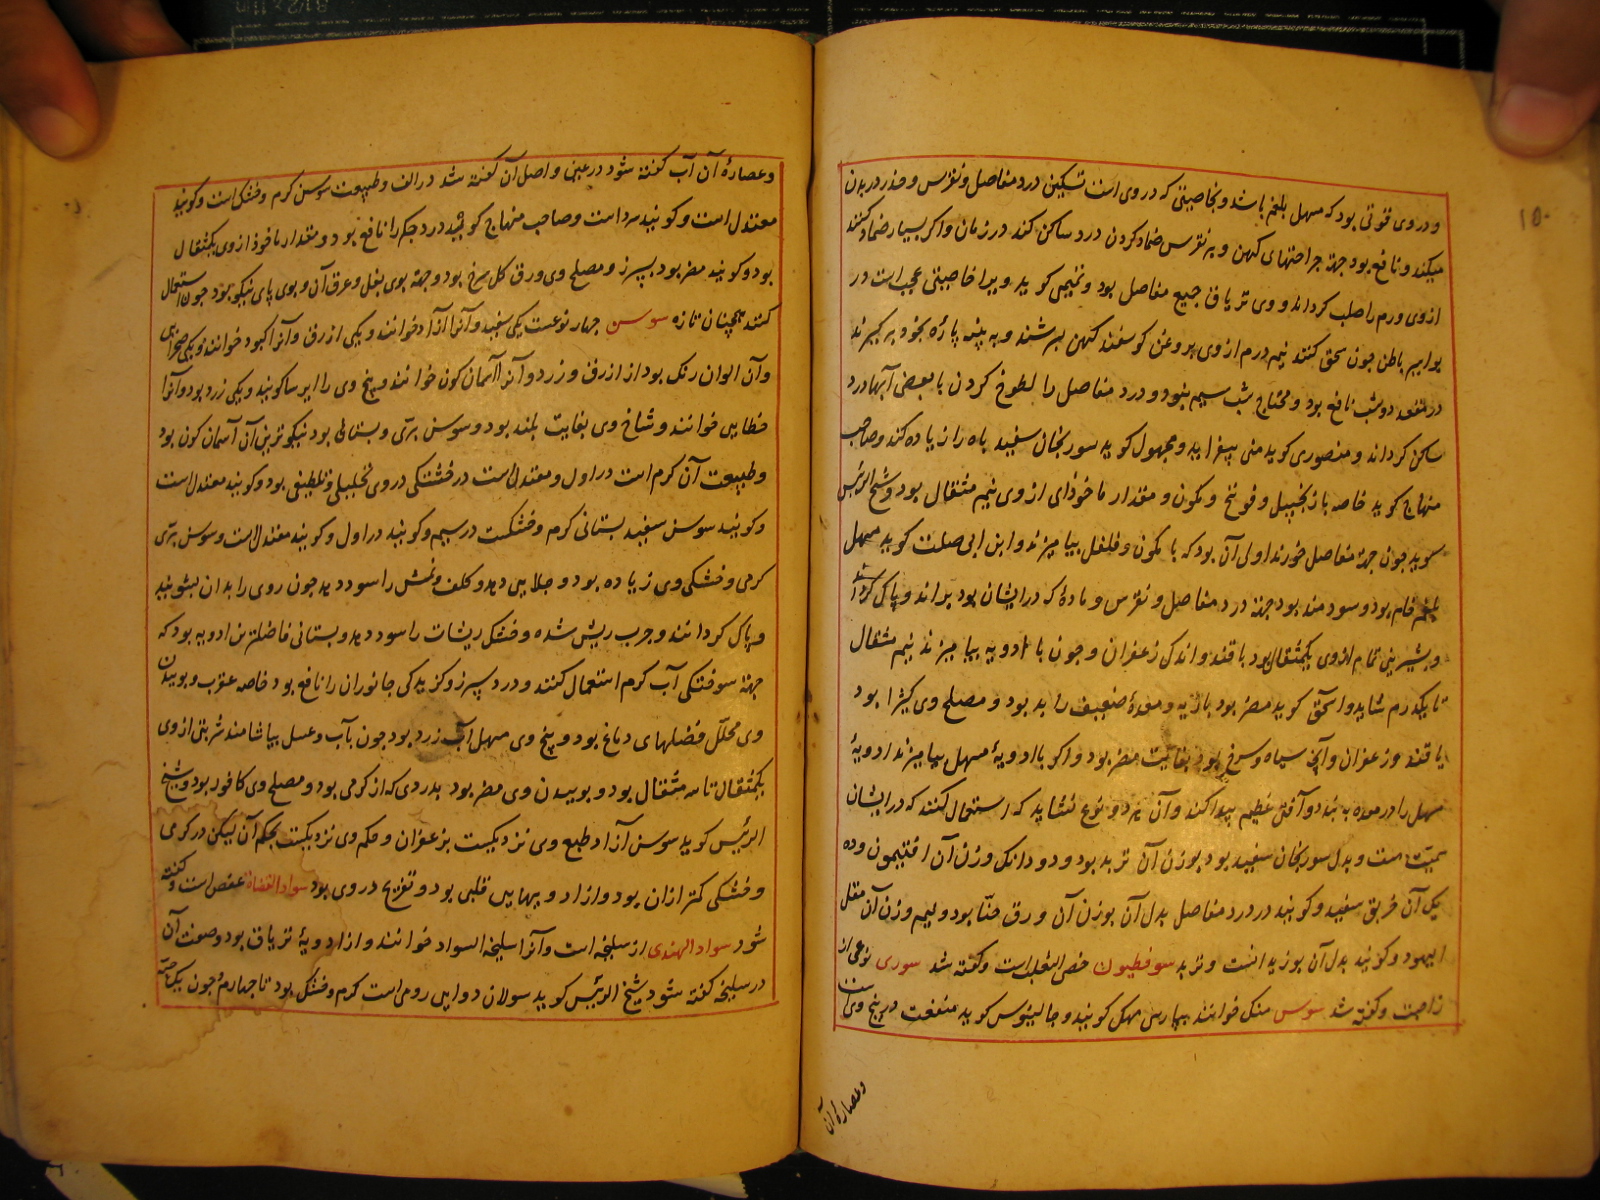 ۱۵۰
و در وی قوتی بود که مسهل بلغم باشد و بخاصیتی که در وی است تسکین درد مفاصل و نقرس و خدر در بدن
میکند و نافع بود جهة جراحتهای کهن و بر نقرس ضماد کردن درد ساکن کند در زمان و اگر بسیار ضماد کنند
از وی ورم را صلب گرداند و وی تریاق جمیع مفاصل بود و تمیمی گوید ویرا خاصیتی عجب است در
بواسیر باطن چون سحق کنند نیم درم از وی بروغن گوسفند کهن بسرشند و به پنبه پاره بخود بر گیرند
در مقعد دو شب نافع بود و محتاج شب سیم نبود و درد مفاصل را لطوخ کردن با بعضی آبها درد
ساکن گرداند و منصوری گوید منی بیفزاید و مجهول گوید سورنجان سفید باه را زیاده کند و صاحب
منهاج گوید خاصه با زنجبیل و فوتنج و کمون و مقدار ماخوذای از وی نیم مثقال بود و شیخ الرئیس
گوید چون جهة مفاصل خورند اولی آن بود که با کمون و فلفل بیامیزند و ابن ابی صلت گوید مسهل
بلغم خام بود و سودمند بود جهة درد مفاصل و نقرس و ماده که در ایشان بود براند و پاک گرداند
و بشیرینی تمام از وی یکمثقال بود با قند و اندکی زعفران و چون با ادویه بیامیزند نیم مثقال
تا یکدرم شاید و اسحق گوید مضر بود بازیه و معدهٔ ضعیف را بد بود و مصلح وی کثیرا بود
یا قند و زعفران و آنچه سیاه و سرخ بود بغایت مضر بود و اگر با ادویهٔ مسهل بیامیزند ادویهٔ
مسهل را در معده به بندد و آفتی عظیم پیدا کند و آن هر دو نوع نشاید که استعمال کنند که در ایشان
سمیّت هست و بدل سورنجان سفید بود بوزن آن تربد بود و دو دانک وزن آن افتیمون و ده
یک آن خربق سفید و گویند در درد مفاصل بدل آن بوزن آن ورق حنّا بود و نیم وزن آن مقل
الیهود و گویند بدل آن بوزیدانست و تربد سوفطیون خصی الثعلب است و گفته شد سوری نوعی از
زاجست و گفته شد سوس متک خوانند بپارسی مهک گویند و جالینوس گوید منفعت در بیخ وی است
و عصارهٔ آن
و عصارهٔ آن آب گفته شود در عین و اصل آن گفته شد در الف و طبیعت سوس گرم و خشک است و گویند
معتدل است و گویند سرد است و صاحب منهاج گوید درد جگر را نافع بود و مقدار ماخوذ از وی یکمثقال
بود و گویند مضر بود بسپرز و مصلح وی ورق گل سرخ بود و جهة بوی بغل و عرق آن و بوی پای نیکو بود چون استعمال
کنند همچنان تازه سوسن چهار نوعست یکی سفید و آنرا آزاد خوانند و یکی ازرق و آنرا کبود خوانند و یکی صحرایی
و آن الوان رنک بود از ازرق و زرد و آنرا آسمان کون خوانند و بیخ وی را ایرسا گویند و یکی زرد بود و آنرا
خطایی خوانند و شاخ وی بغایت بلند بود و سوسن برّی و بستانی بود نیکوترین آن آسمان کون بود
و طبیعت آن گرم است در اول و معتدل است در خشکی در وی تحلیلی و تلطیفی بود و گویند معتدل است
و گویند سوسن سفید بستانی گرم و خشکست در سیم و گویند در اول و گویند معتدل است و سوسن برّی
گرمی و خشکی وی زیاده بود و جلایی دهد و کلف و نمش را سود دهد چون روی را بدان بشویند
و پاک گردانند و جرب ریش شده و خشک ریشات را سود دهد و بستانی فاضلترین ادویه بود که
جهة سوختکی آب گرم استعمال کنند و درد سپرز و گزیدگی جانوران را نافع بود خاصه عقرب و بوییدن
وی محلّل فضلهای دماغ بود و بیخ وی مسهل آب زرد بود چون بآب و عسل بیاشامند شربتی از وی
یکمثقال تا سه مثقال بود و بوییدن وی مضر بود بدردی که از گرمی بود و مصلح وی کافور بود و شیخ
الرئیس گوید سوسن آزاد طبع وی نزدیکست بزعفران و حکم وی نزدیکست بحکم آن لیکن در گرمی
و خشکی کمتر از آن بود و از ادویهایی قلبی بود و تفریح در وی بود سواد القضاة عفص است و گفته
شود سواد الهندی از سلیخه است و آنرا سلیخة السواد خوانند و از ادویهٔ تریاق بود و صفت آن
در سلیخه گفته شود شیخ الرئیس گوید سولان دوایی رومی است گرم و خشک بود تا چهارم چون یکحبّه